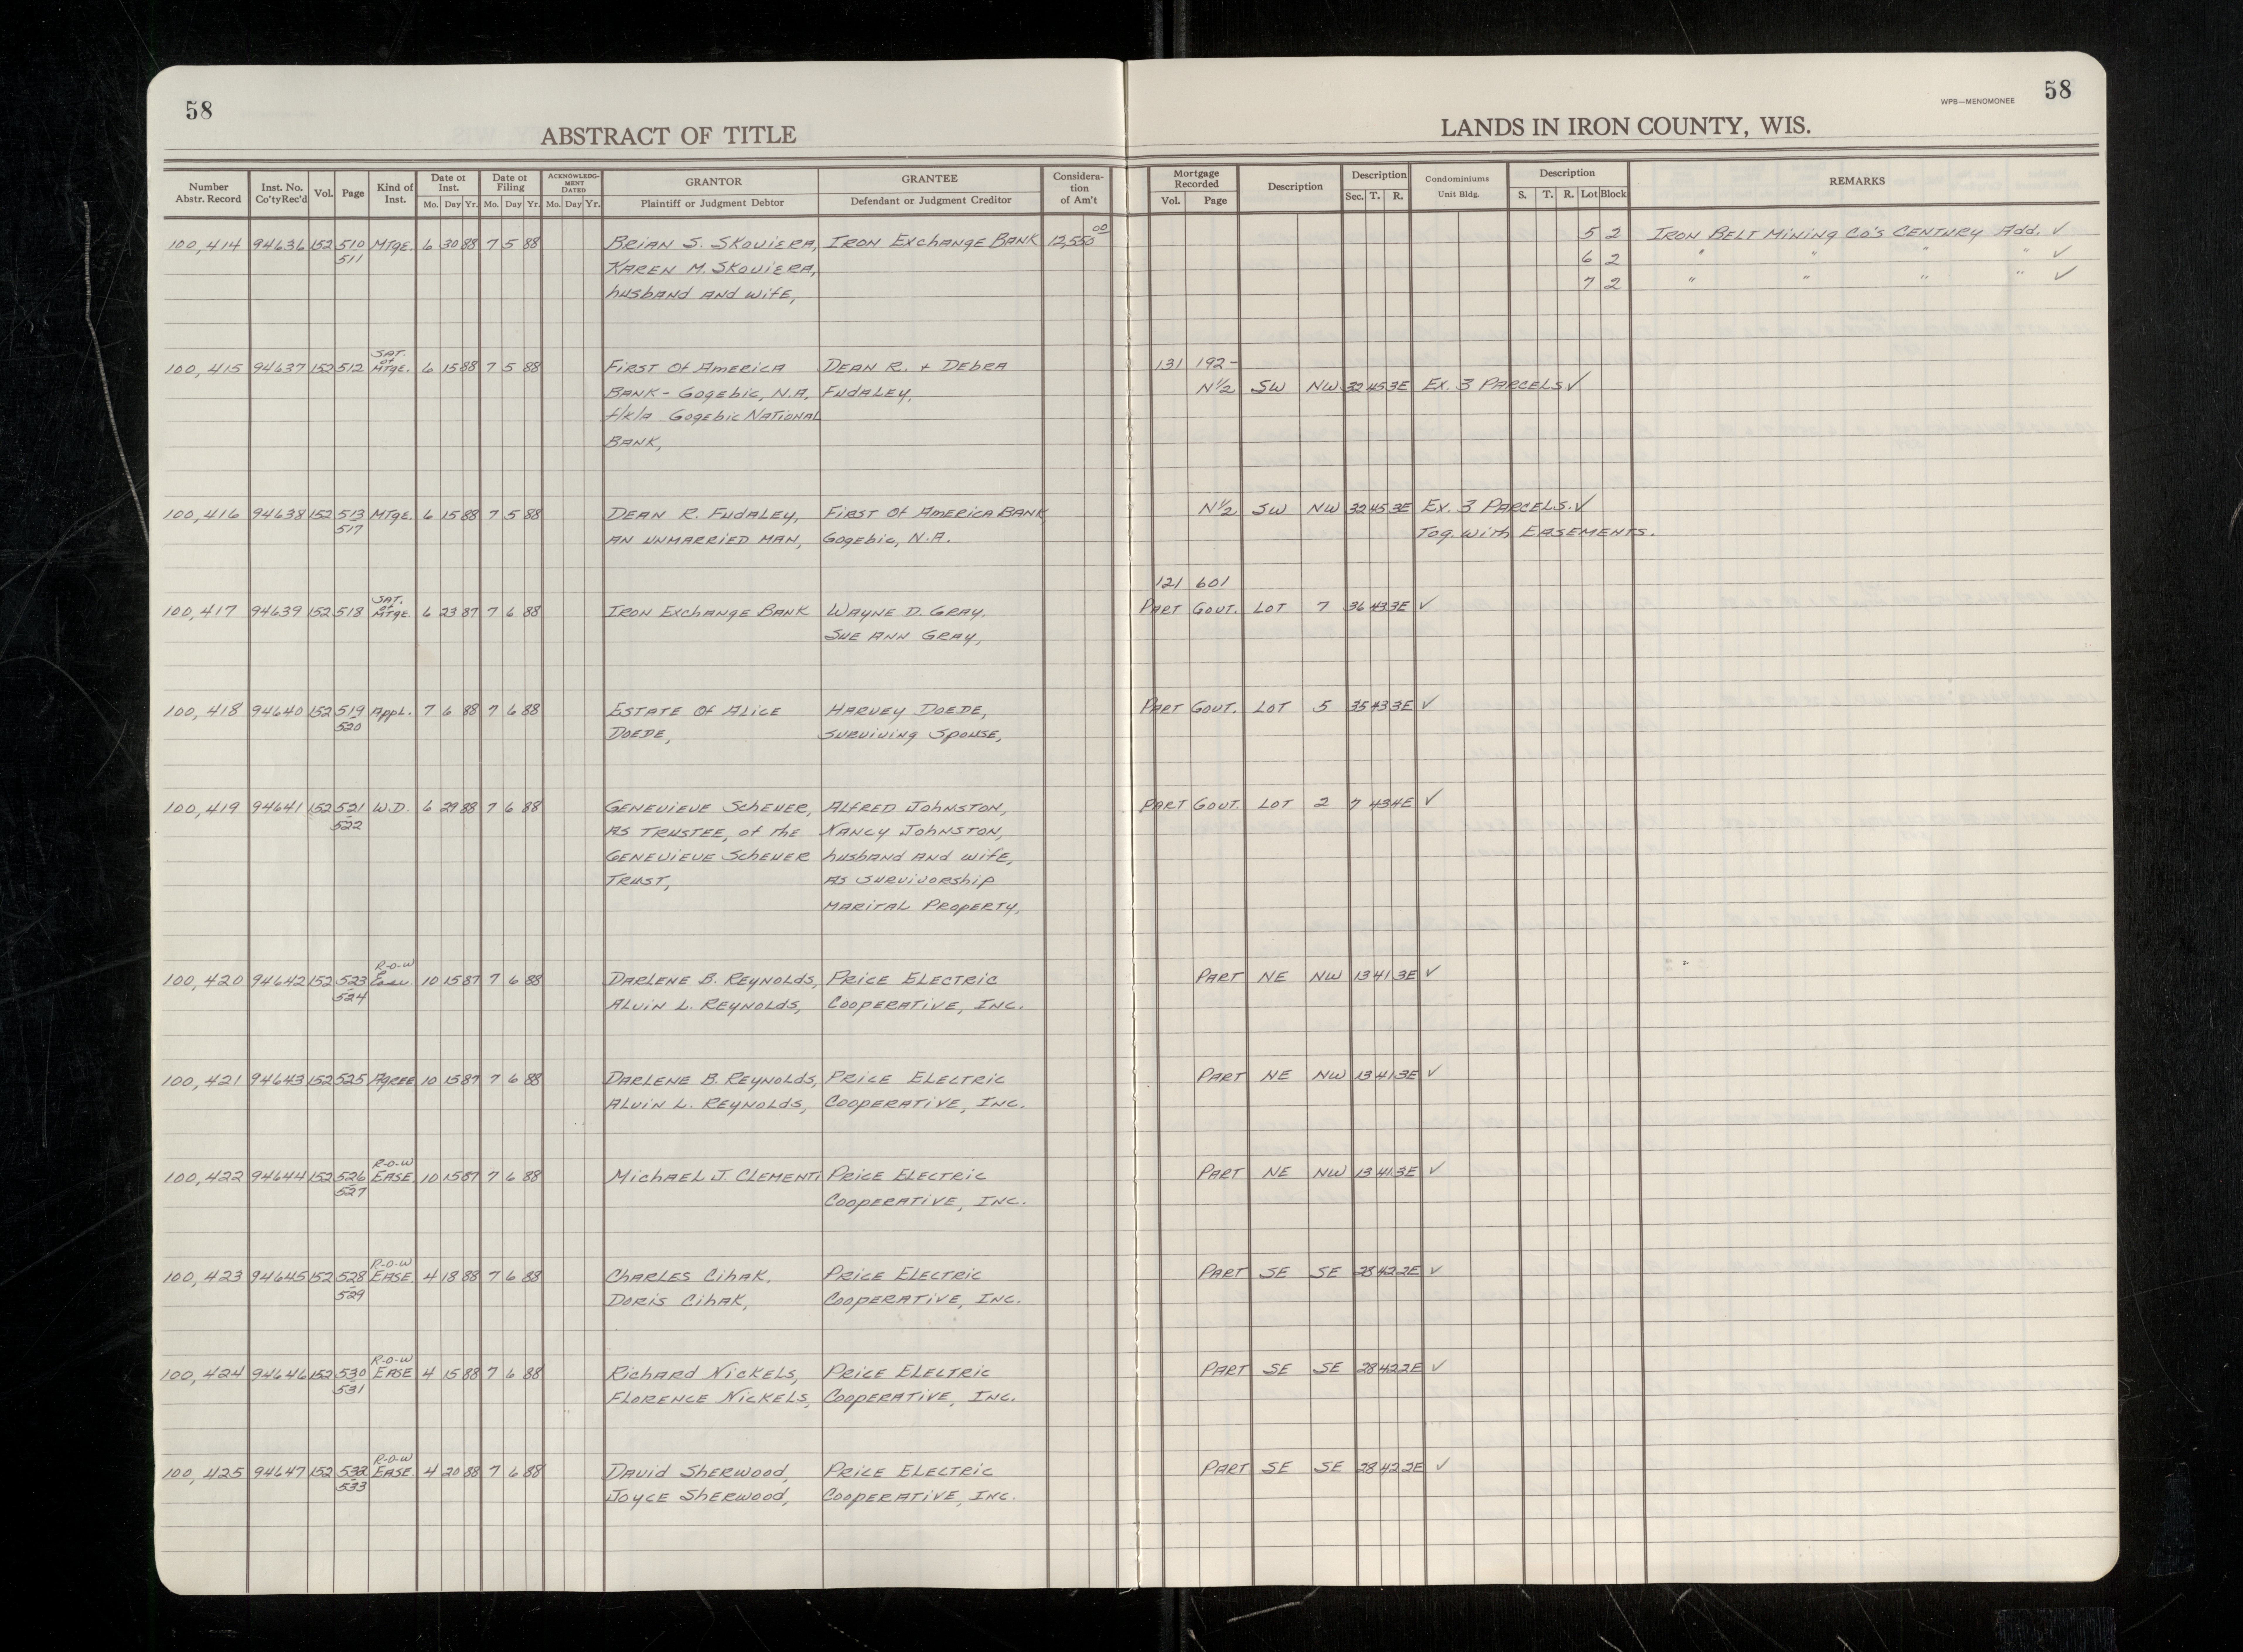 58
ABSTRACT OF TITLE
LANDS IN IRON COUNTY, WIS.
WPB—MENOMONEE
58
Number Abstr. Record | Inst. No. Co'ty Rec'd | Vol. | Page | Kind of Inst. | Date of Inst. Mo. Day Yr. | Date of Filing Mo. Day Yr. | ACKNOWLEDGMENT DATED Mo. Day Yr. | GRANTOR Plaintiff or Judgment Debtor | GRANTEE Defendant or Judgment Creditor | Consideration of Am't | Mortgage Recorded Vol. Page | Description | Description Sec. T. R. | Condominiums Unit Bldg. | Description S. T. R. Lot Block | REMARKS
100,414 94636 152 510 MTGE. 6 30 88 7 5 88 BRIAN S. SKOVIERA, IRON EXCHANGE BANK 12,550 00 5 2 IRON BELT MINING CO'S CENTURY ADD. ✓
511 KAREN M. SKOVIERA, 6 2 " " " " ✓
HUSBAND AND WIFE, 7 2 " " " " ✓
SAT. of
100,415 94637 152 512 MTGE. 6 15 88 7 5 88 FIRST OF AMERICA DEAN R. + DEBRA 131 192-
BANK - GOGEBIC, N.A. FUDALEY, N½ SW NW 32 45 3E EX. 3 PARCELS ✓
f/k/a GOGEBIC NATIONAL
BANK,
100,416 94638 152 513 MTGE. 6 15 88 7 5 88 DEAN R. FUDALEY, FIRST OF AMERICA BANK N½ SW NW 32 45 3E EX. 3 PARCELS. ✓
517 AN UNMARRIED MAN, GOGEBIC, N.A. TOG. WITH EASEMENTS.
121 601
SAT. of
100,417 94639 152 518 MTGE. 6 23 87 7 6 88 IRON EXCHANGE BANK WAYNE D. GRAY. PART GOVT. LOT 7 36 43 3E ✓
SUE ANN GRAY,
100,418 94640 152 519 APPL. 7 6 88 7 6 88 ESTATE OF ALICE HARVEY DOEDE, PART GOVT. LOT 5 35 43 3E ✓
520 DOEDE, SURVIVING SPOUSE,
100,419 94641 152 521 W.D. 6 29 88 7 6 88 GENEVIEVE SCHEUER, ALFRED JOHNSTON, PART GOVT. LOT 2 7 43 4E ✓
522 AS TRUSTEE, OF THE NANCY JOHNSTON,
GENEVIEVE SCHEUER HUSBAND AND WIFE,
TRUST, AS SURVIVORSHIP
MARITAL PROPERTY,
R-O-W
100,420 94642 152 523 Ease. 10 15 87 7 6 88 DARLENE B. REYNOLDS, PRICE ELECTRIC PART NE NW 13 41 3E ✓
524 ALVIN L. REYNOLDS, COOPERATIVE, INC.
100,421 94643 152 525 AGREE 10 15 87 7 6 88 DARLENE B. REYNOLDS, PRICE ELECTRIC PART NE NW 13 41 3E ✓
ALVIN L. REYNOLDS, COOPERATIVE, INC.
R-O-W
100,422 94644 152 526 EASE. 10 15 87 7 6 88 MICHAEL J. CLEMENTI PRICE ELECTRIC PART NE NW 13 41 3E ✓
527 COOPERATIVE, INC.
R-O-W
100,423 94645 152 528 EASE. 4 18 88 7 6 88 CHARLES CIHAK, PRICE ELECTRIC PART SE SE 28 42 2E ✓
529 DORIS CIHAK, COOPERATIVE, INC.
R-O-W
100,424 94646 152 530 EASE 4 15 88 7 6 88 RICHARD NICKELS, PRICE ELECTRIC PART SE SE 28 42 2E ✓
531 FLORENCE NICKELS, COOPERATIVE, INC.
R-O-W
100,425 94647 152 532 EASE. 4 20 88 7 6 88 DAVID SHERWOOD, PRICE ELECTRIC PART SE SE 28 42 2E ✓
533 JOYCE SHERWOOD, COOPERATIVE, INC.